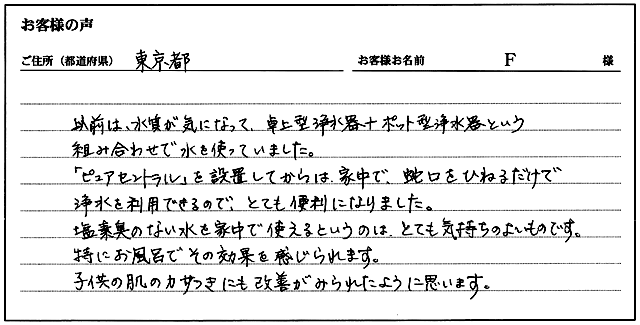 お客様の声
ご住所（都道府県） 東京都 お客様お名前 F 様
以前は、水質が気になって、卓上型浄水器＋ポット型浄水器という
組み合わせで水を使っていました。
「ピュアセントラル」を設置してからは、家中で、蛇口をひねるだけで
浄水を利用できるので、とても便利になりました。
塩素臭のない水を家中で使えるというのは、とても気持ちのよいものです。
特にお風呂でその効果を感じられます。
子供の肌のカサつきにも改善がみられたように思います。